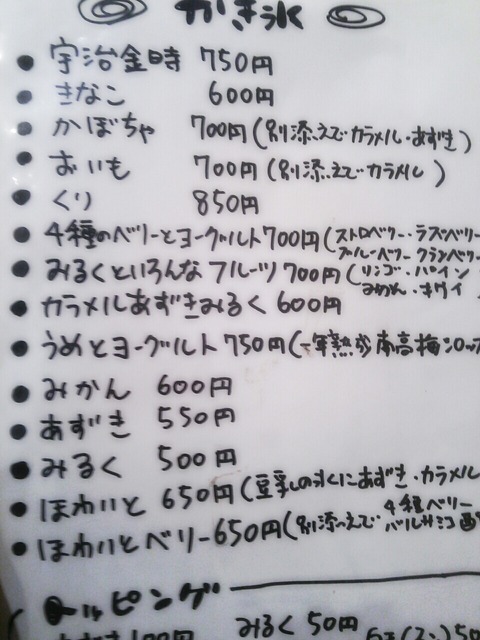 かき氷
● 宇治金時 750円
● きなこ 600円
● かぼちゃ 700円(別添えでカラメル・あずき)
● おいも 700円(別添えでカラメル)
● くり 850円
● 4種のベリーとヨーグルト700円(ストロベリー・ラズベリー
ブルーベリー クランベリー
● みるくといろんなフルーツ700円(リンゴ・パイン
みかん・キウイ
● カラメルあずきみるく 600円
● うめとヨーグルト 750円(一年熟成南高梅シロップ
● みかん 600円
● あずき 550円
● みるく 500円
● ほわいと 650円(豆乳の氷にあずき・カラメル
● ほわいとベリー650円(別添えで 4種ベリー
バルサミコ酢
トッピング
100円 みるく 50円